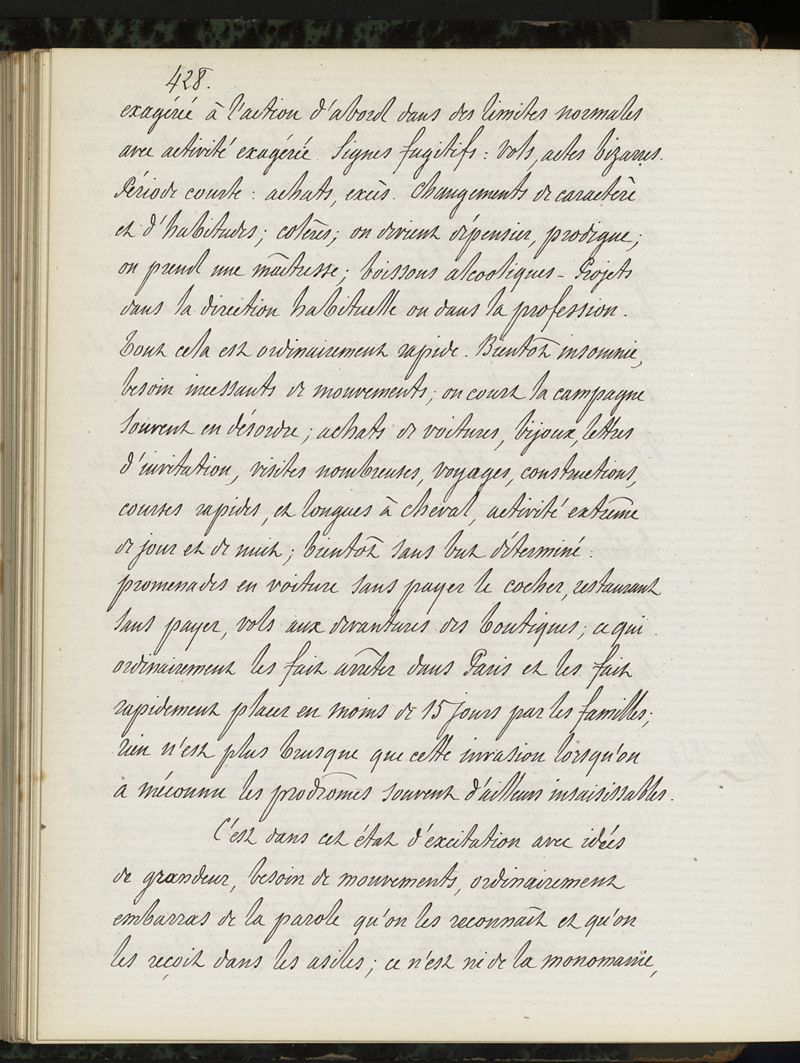 428.
exagérée à l'action d'abord dans des limites normales
avec activité exagérée. Signes fugitifs : vols, actes bizarres.
Période courte : achats, excès. Changements de caractère
et d'habitudes; colères; on devient dépensier, prodigue;
on prend une maîtresse; boissons alcooliques - Projets
dans la direction habituelle ou dans la profession.
Tout cela est ordinairement rapide. Bientôt insomnie,
besoin incessants de mouvements; on court la campagne
souvent en désordre; achats de voitures, bijoux, lettres
d'invitation, visites nombreuses, voyages, constructions,
courses rapides, et longues à cheval, activité extrême
de jour et de nuit; bientôt sans but déterminé :
promenades en voiture sans payer le cocher, restaurant
sans payer, vols aux devantures des boutiques; ce qui
ordinairement les fait arrêter dans Paris et les fait
rapidement placer en moins de 15 jours par les familles;
rien n'est plus brusque que cette invasion lorsqu'on
a méconnu les prodromes souvent d'ailleurs insaisissables.
C'est dans cet état d'excitation avec idées
de grandeur, besoin de mouvements, ordinairement
embarras de la parole qu'on les reconnaît et qu'on
les reçoit dans les asiles; ce n'est ni de la monomanie,